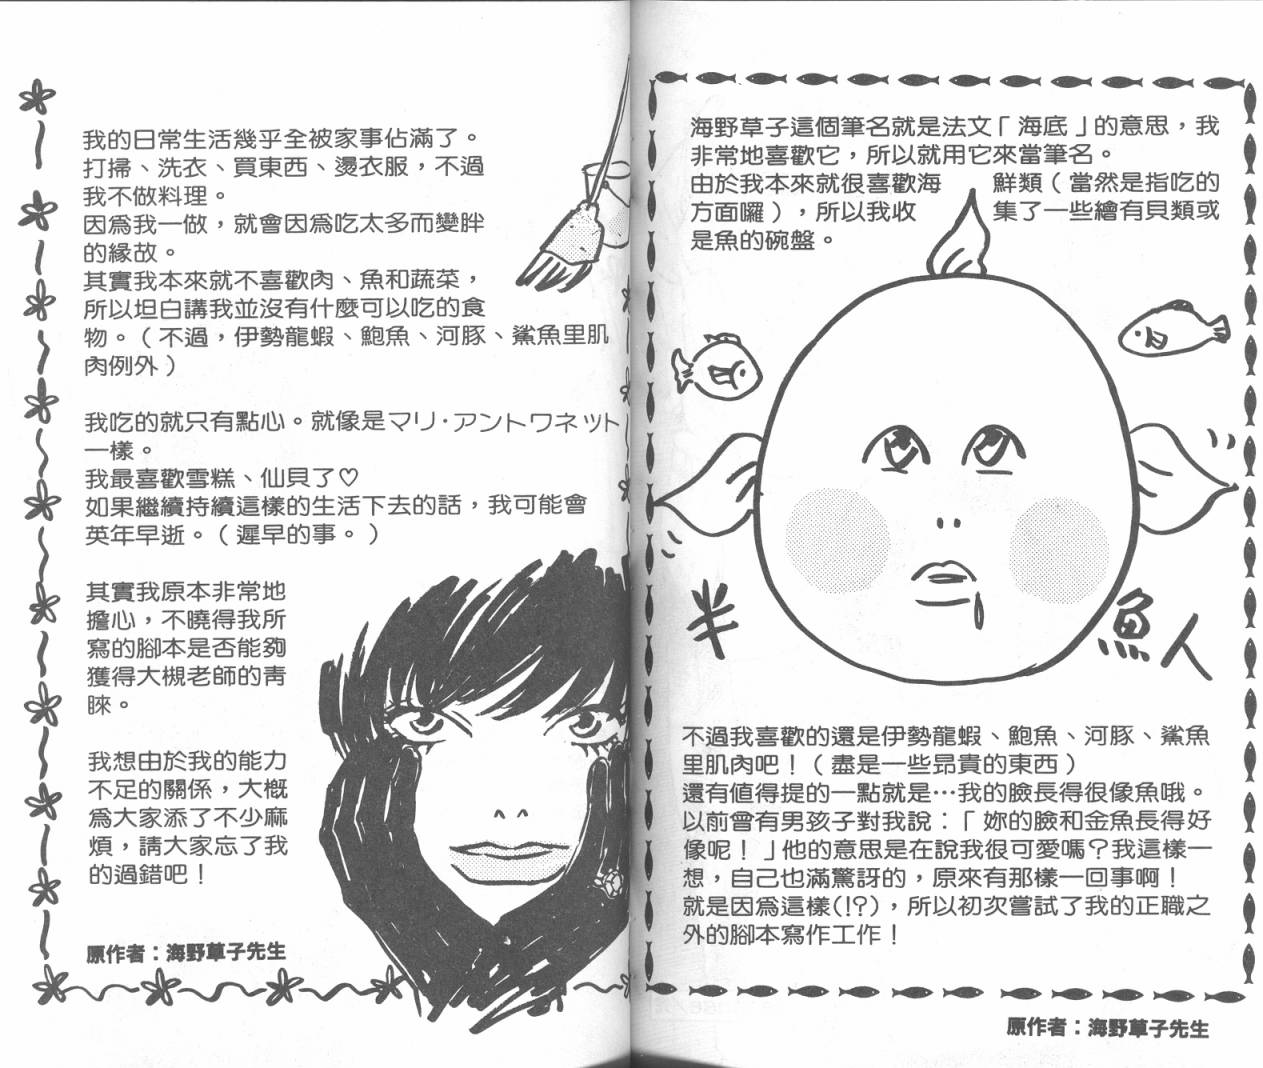 海野草子這個筆名就是法文「海底」的意思，我
非常地喜歡它，所以就用它來當筆名。
由於我本來就很喜歡海鮮類（當然是指吃的
方面囉），所以我收集了一些繪有貝類或
是魚的碗盤。
半魚人
不過我喜歡的還是伊勢龍蝦、鮑魚、河豚、鯊魚
里肌肉吧！（盡是一些昂貴的東西）
還有值得提的一點就是…我的臉長得很像魚哦。
以前曾有男孩子對我說：「妳的臉和金魚長得好
像呢！」他的意思是在說我很可愛嗎？我這樣一
想，自己也滿驚訝的，原來有那樣一回事啊！
就是因為這樣(!?)，所以初次嘗試了我的正職之
外的腳本寫作工作！
原作者：海野草子先生
我的日常生活幾乎全被家事佔滿了。
打掃、洗衣、買東西、燙衣服，不過
我不做料理。
因為我一做，就會因為吃太多而變胖
的緣故。
其實我本來就不喜歡肉、魚和蔬菜，
所以坦白講我並沒有什麼可以吃的食
物。（不過，伊勢龍蝦、鮑魚、河豚、鯊魚里肌
肉例外）
我吃的就只有點心。就像是マリ·アントワネット
一樣。
我最喜歡雪糕、仙貝了♡
如果繼續持續這樣的生活下去的話，我可能會
英年早逝。（遲早的事。）
其實我原本非常地
擔心，不曉得我所
寫的腳本是否能夠
獲得大槻老師的青
睞。
我想由於我的能力
不足的關係，大概
為大家添了不少麻
煩，請大家忘了我
的過錯吧！
原作者：海野草子先生